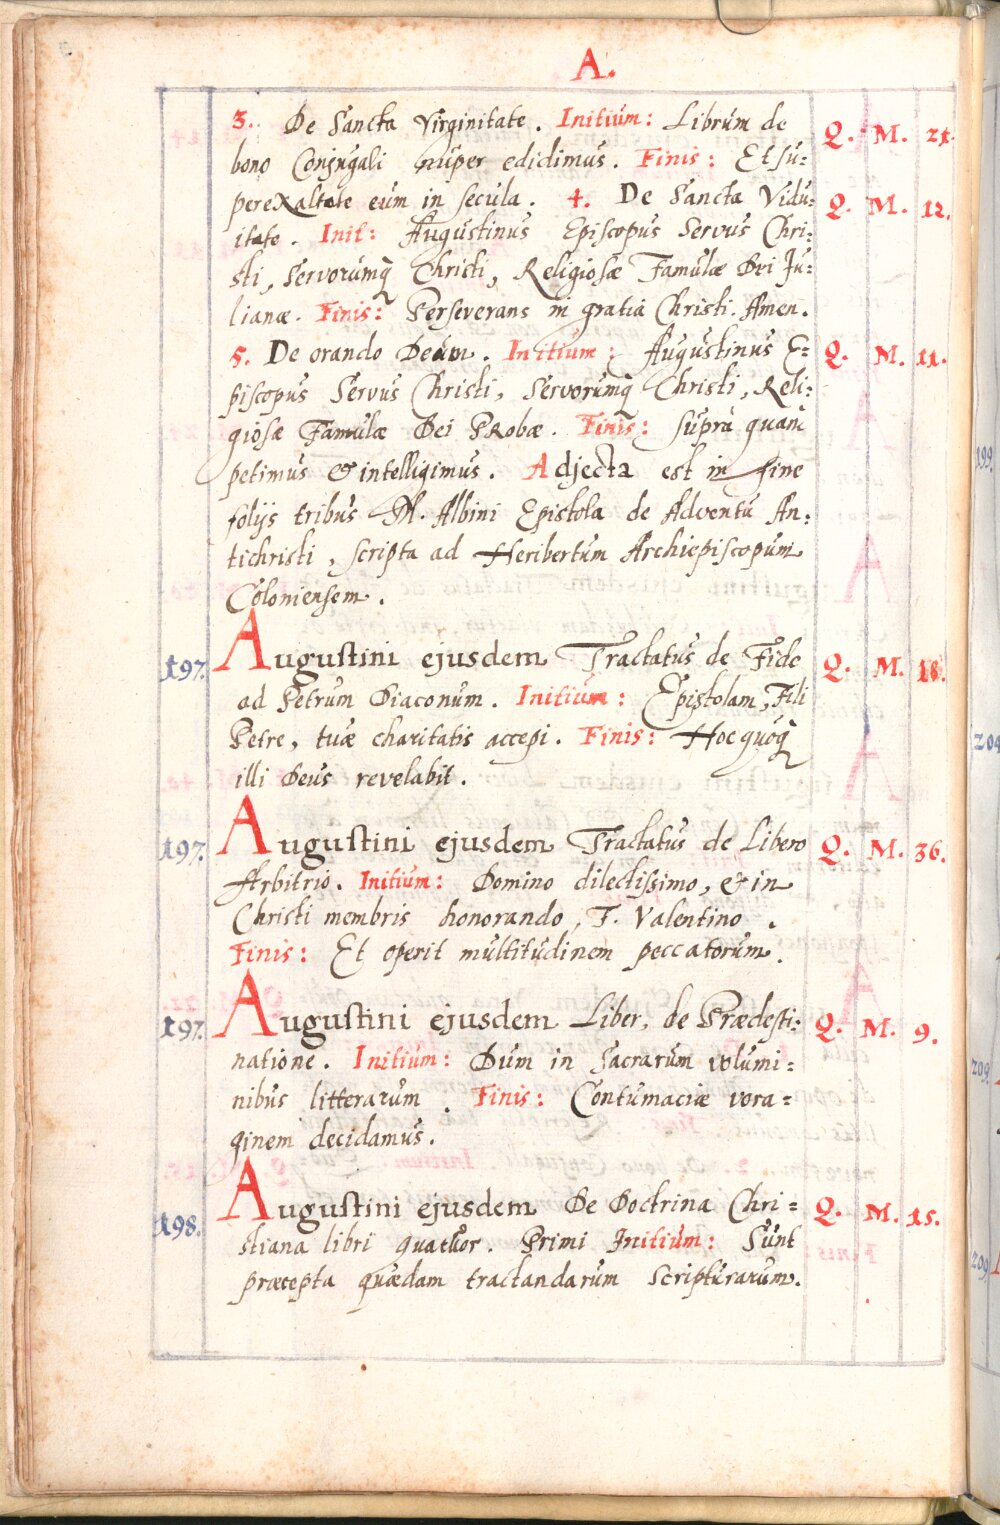 A.
3. De Sancta Virginitate. Initium: Librum de Q. M. 21.
bono Conjugali nuper edidimus. Finis: Et su=
perexaltate eum in secula. 4. De Sancta Vidu= Q. M. 12.
itate. Init: Augustinus Episcopus Servus Chri=
sti, Servorumq Christi, Religiosæ Famulæ Dei Ju=
lianæ. Finis: Perseverans in gratia Christi. Amen.
5. De orando Deum. Initium: Augustinus E= Q. M. 11.
piscopus Servus Christi, Servorumq Christi, Reli=
giosæ Famulæ Dei Probæ. Finis: Supra quam
petimus & intelligimus. Adjecta est in fine
folijs tribus M. Albini Epistola de Adventu An=
tichristi, scripta ad Heribertum Archiepiscopum
Coloniensem.
197. Augustini ejusdem Tractatus de Fide Q. M. 18.
ad Petrum Diaconum. Initium: Epistolam, Fili
Petre, tuæ charitatis accepi. Finis: Hoc quoq
illi Deus revelabit.
197. Augustini ejusdem Tractatus de Libero Q. M. 36.
Arbitrio. Initium: Domino dilectissimo, & in
Christi membris honorando, F. Valentino.
Finis: Et operit multitudinem peccatorum.
197. Augustini ejusdem Liber, de Prædesti= Q. M. 9.
natione. Initium: Dum in Sacrarum volumi=
nibus litterarum. Finis: Contumaciæ vora=
ginem decidamus.
198. Augustini ejusdem De Doctrina Chri= Q. M. 15.
stiana libri quatuor. Primi Initium: Sunt
præcepta quædam tractandarum Scripturarum.
199.
204
209.
209.